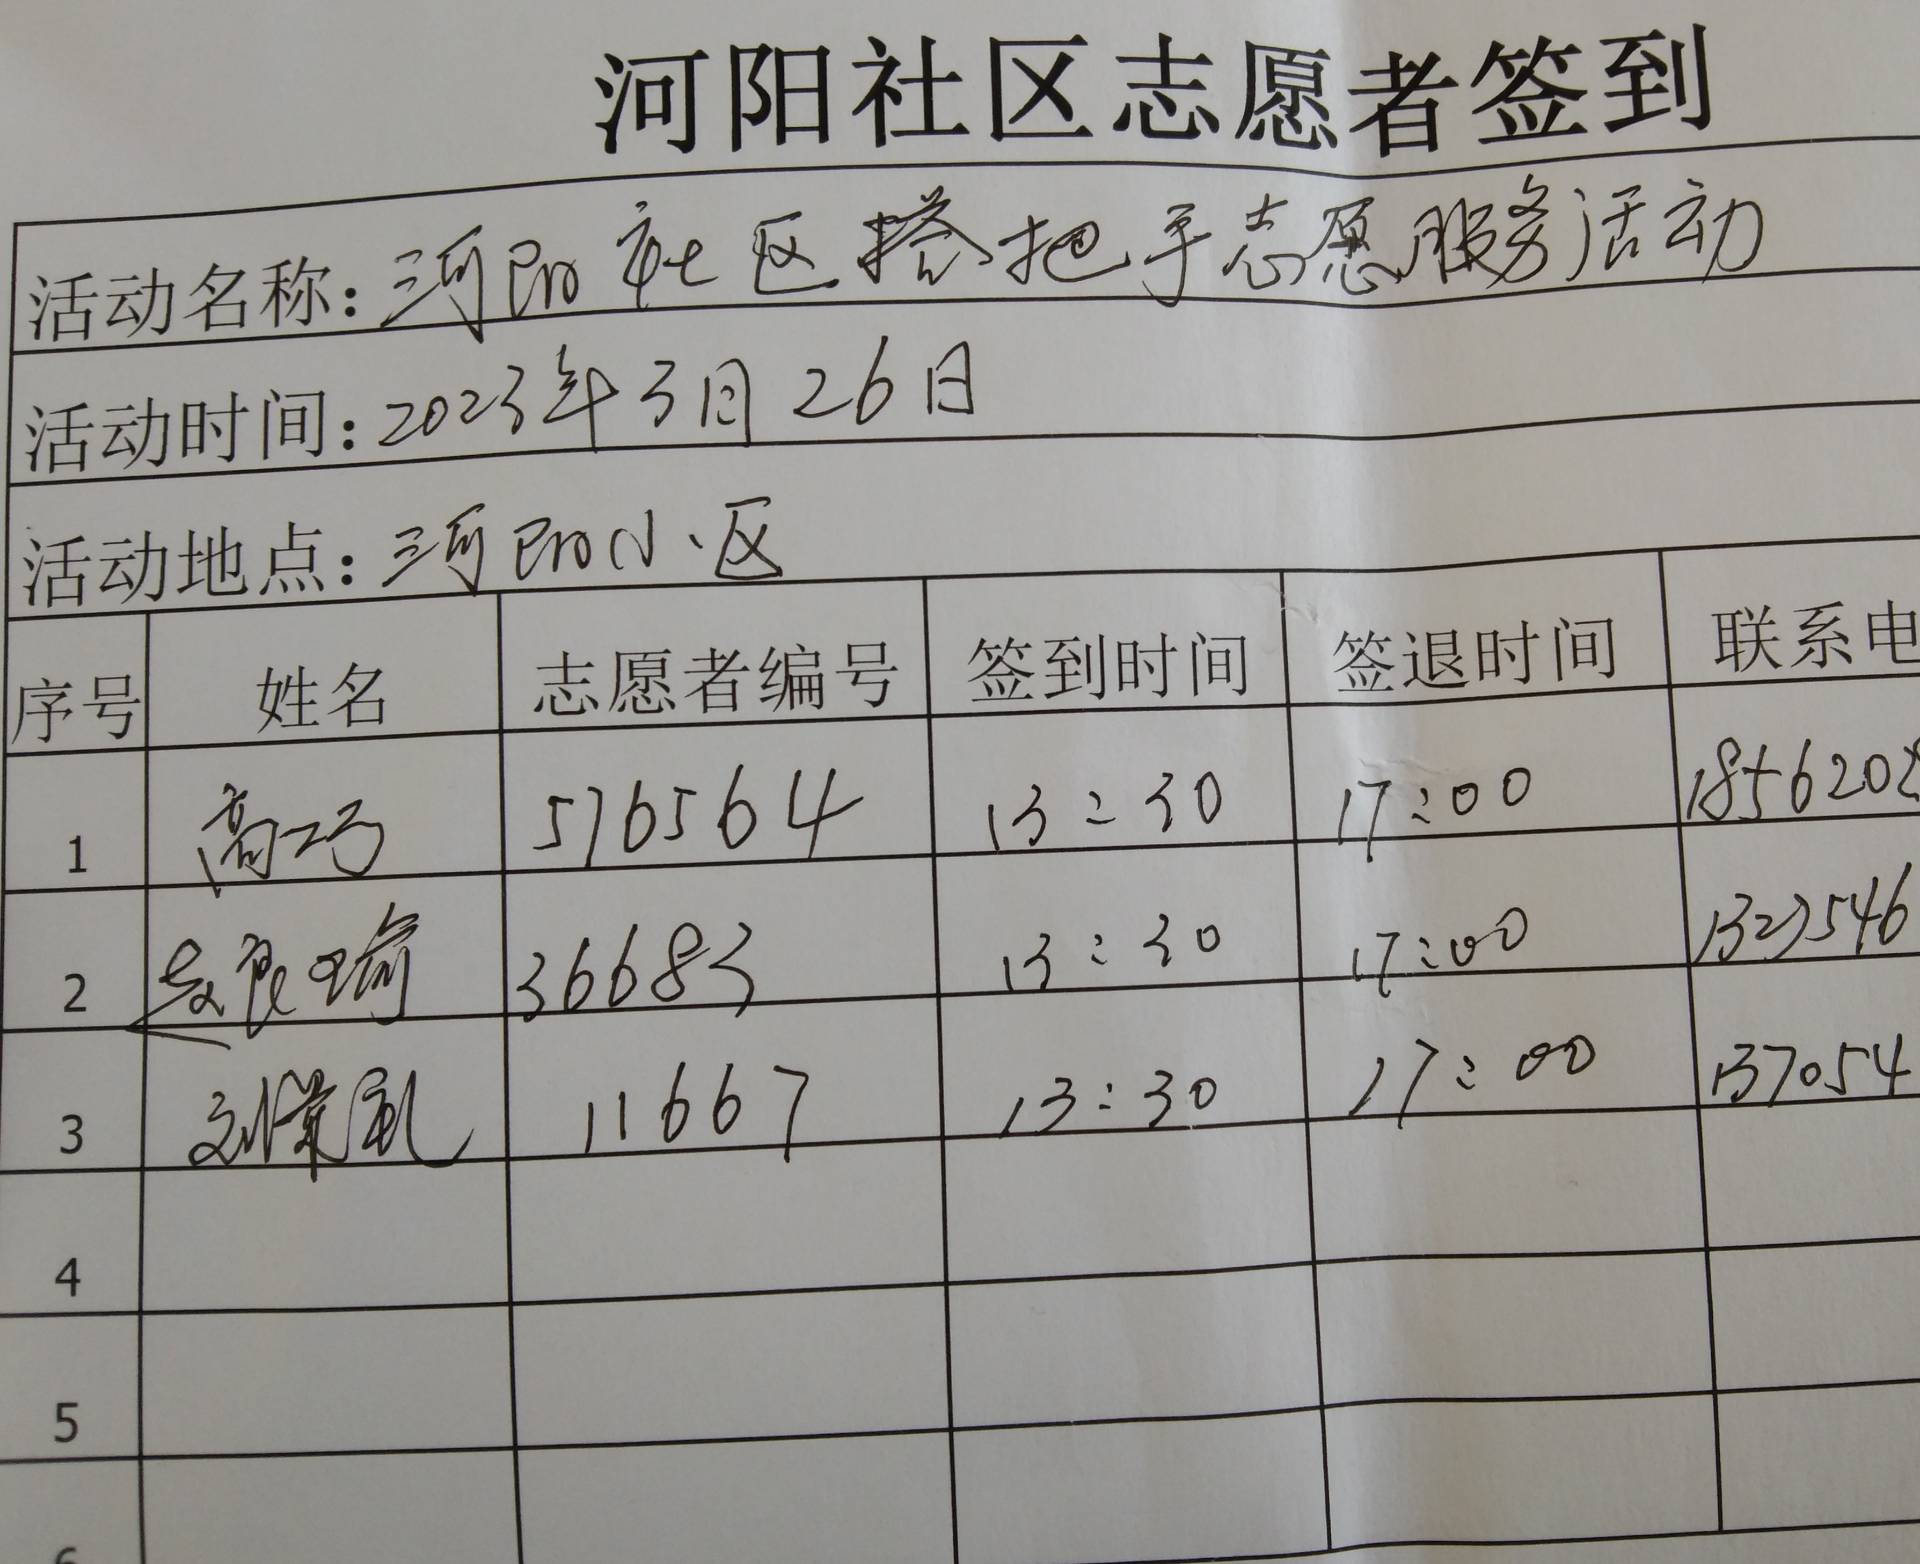 河阳社区志愿者签到
活动名称：河阳社区搭把手志愿服务活动
活动时间：2023年3月26日
活动地点：河阳小区
序号 姓名 志愿者编号 签到时间 签退时间 联系电
1 高巧 576564 13:30 17:00 1856202
2 36683 13:30 17:00 1323546
3 11667 13:30 17:00 137054
4
5
6